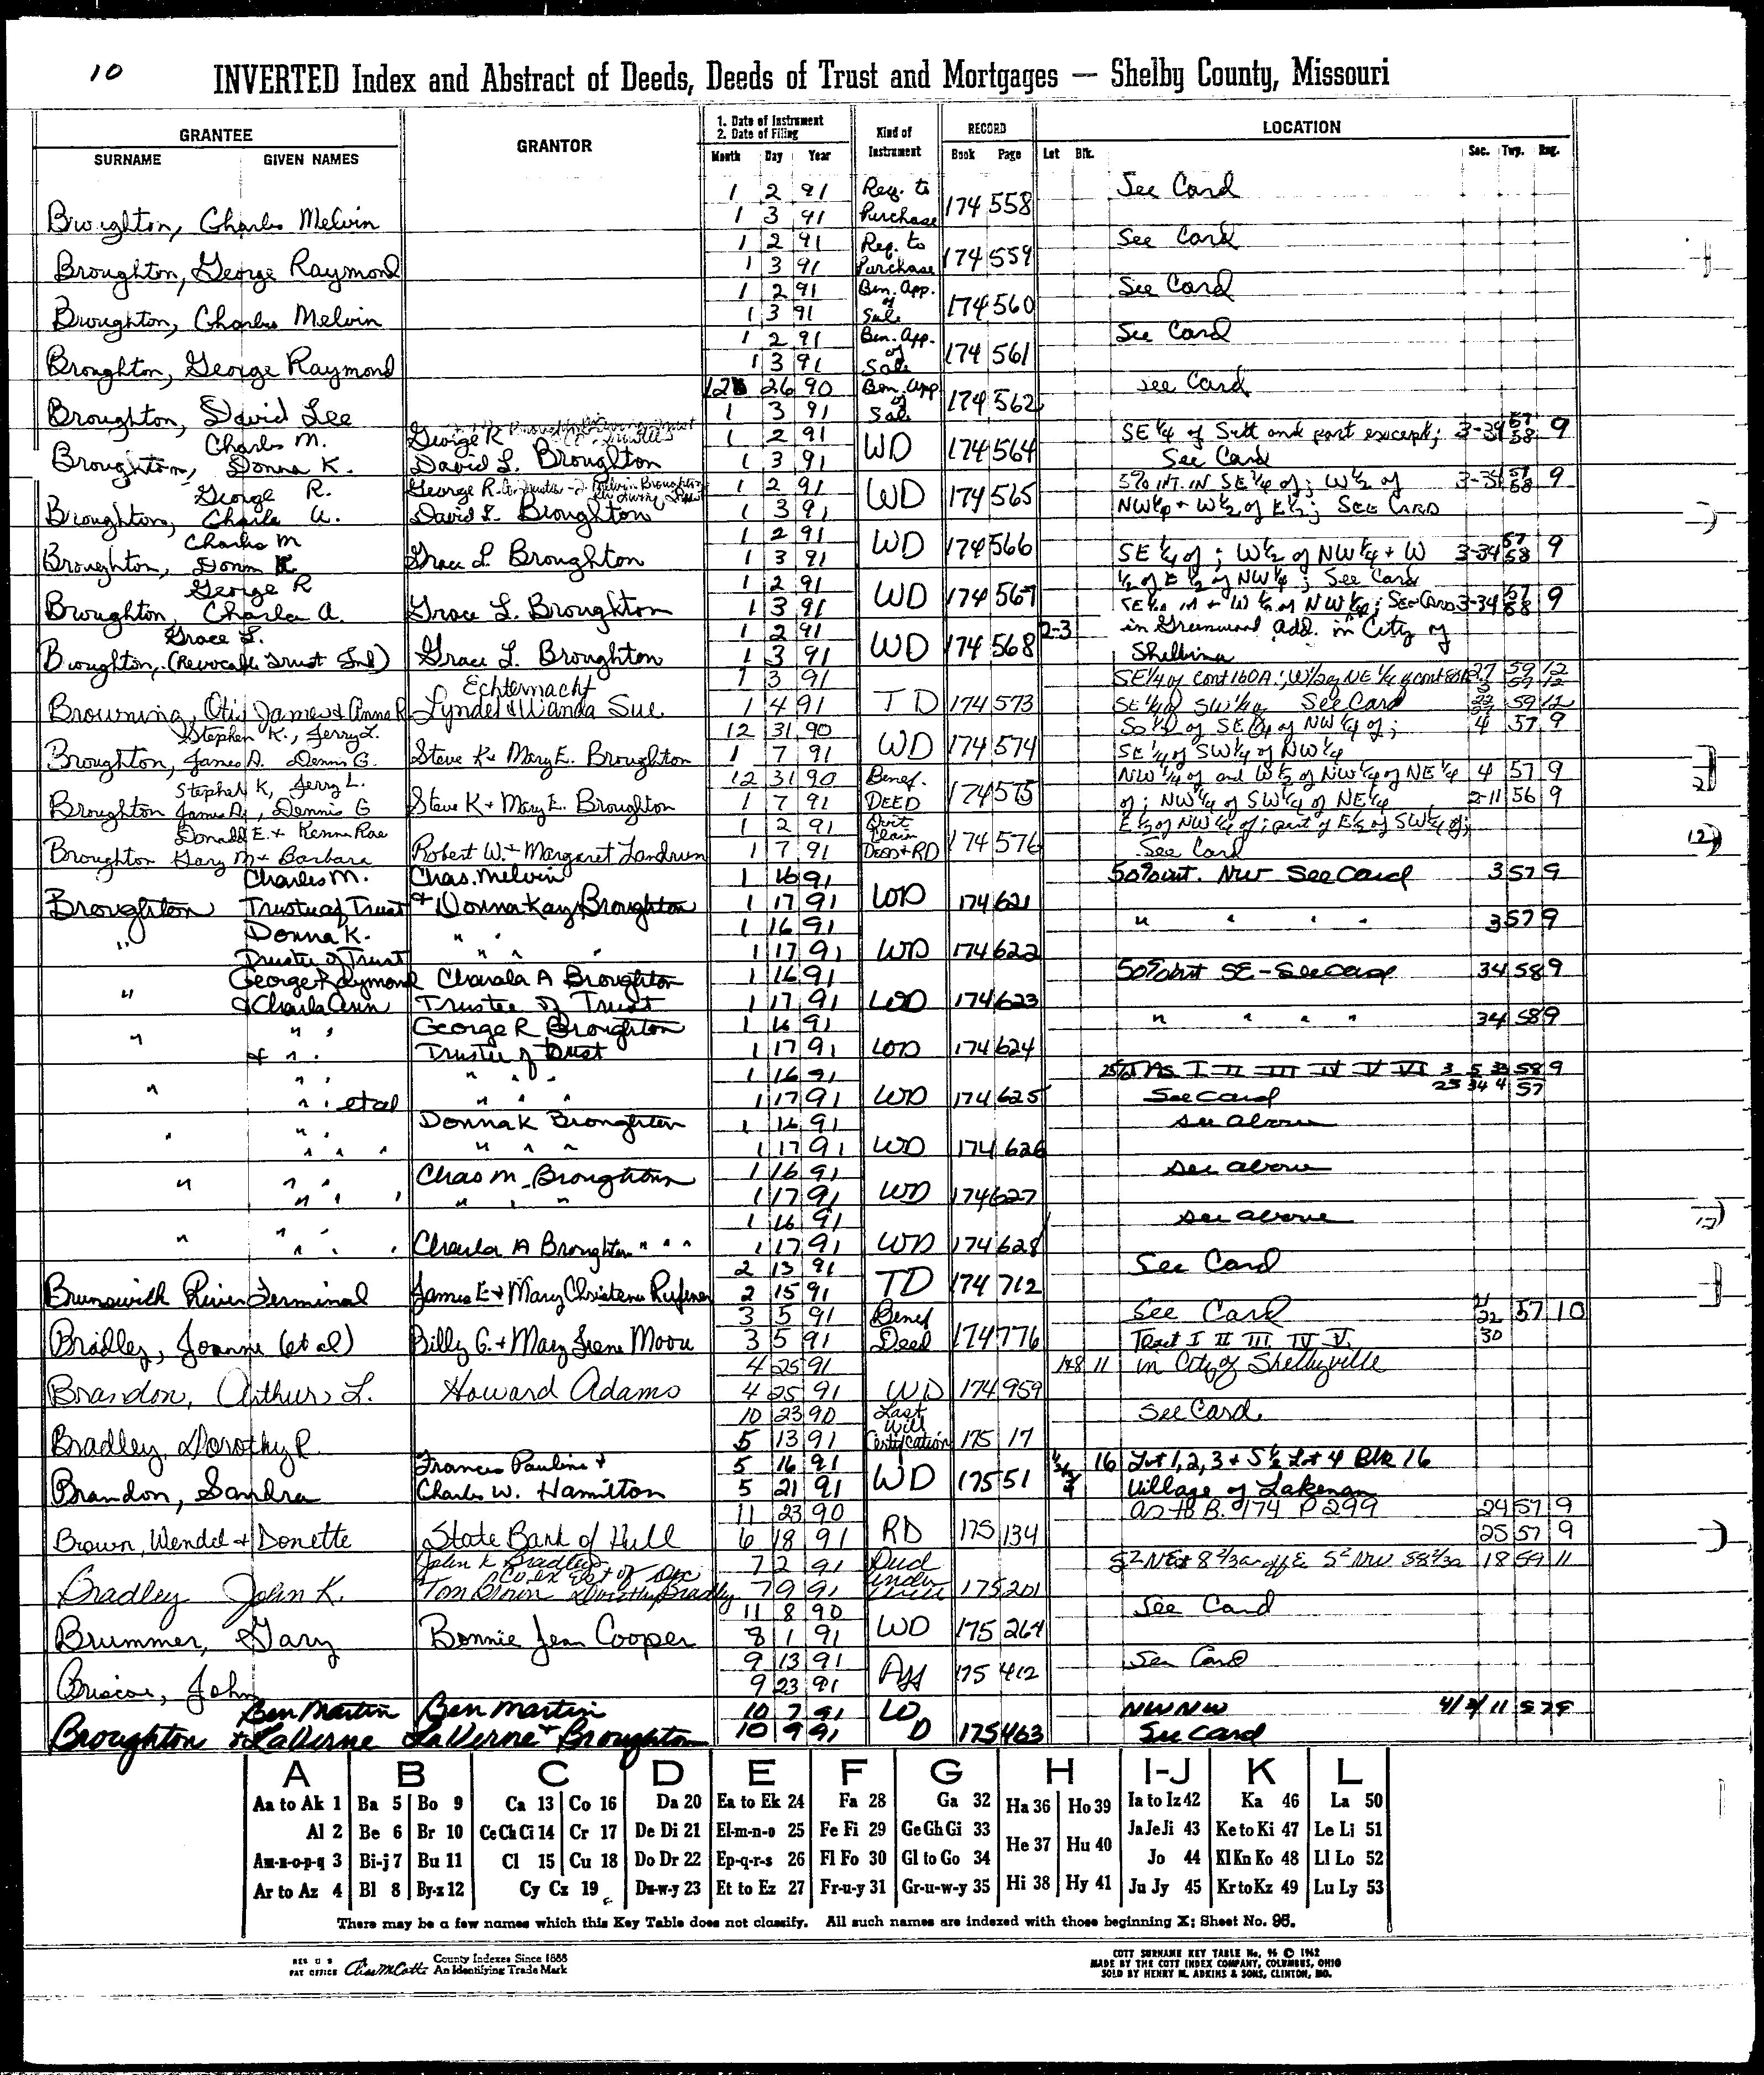 10
INVERTED Index and Abstract of Deeds, Deeds of Trust and Mortgages — Shelby County, Missouri
GRANTEE
SURNAME GIVEN NAMES
GRANTOR
1. Date of Instrument
2. Date of Filing
Month Day Year
Kind of Instrument
RECORD
Book Page
Lot Blk.
LOCATION
Sec. Twp. Rng.
1 2 91 Req. to See Card
Broughton, Charles Melvin 1 3 91 Purchase 174 558
1 2 91 Req. to See Card
Broughton, George Raymond 1 3 91 Purchase 174 559
1 2 91 Ben. App. See Card
Broughton, Charles Melvin 1 3 91 of Sale 174 560
1 2 91 Ben. App. See Card
Broughton, George Raymond 1 3 91 of Sale 174 561
12 26 90 Ben. App See Card
Broughton, David Lee 1 3 91 of Sale 174 562
Charles M. George R 1 2 91 WD 174 564 SE 1/4 of Sutt and part except; 3-34 57 58 9
Broughton, Donna K. David L. Broughton 1 3 91 See Card
George R. George R. 1 2 91 WD 174 565 5% INT. IN SE 1/4 of; W 1/2 of 3-34 57 58 9
Broughton, Charla A. David L. Broughton 1 3 91 NW 1/4 + W 1/2 of E 1/2; SEE CARD
Charles M 1 2 91 WD 174 566 SE 1/4 of; W 1/2 of NW 1/4 + W 3-34 57 58 9
Broughton, Donna K. Grace L. Broughton 1 3 91 1/2 of E 1/2 of NW 1/4; See Card
George R 1 2 91 WD 174 567
Broughton, Charla A. Grace L. Broughton 1 3 91 SE 1/4 of + W 1/2 of NW 1/4; See Card 3-34 57 58 9
Grace L. 1 2 91 WD 174 568 2-3 in Greenwood Add. in City of
Broughton, (Revocable Trust Ind) Grace L. Broughton 1 3 91 Shelbina
Echternacht 1 3 91 SE 1/4 of cont 160A.; W 1/2 of NE 1/4 of cont 80A 27 59 12
Browning, Otis James & Anna R Lyndel & Wanda Sue 1 4 91 TD 174 573 SE 1/4 of SW 1/4 See Card 59 12
Stephen K., Jerry L. 12 31 90 So 1/2 of SE 1/4 of NW 1/4 of; 4 57 9
Broughton, James D. Dennis G. Steve K & Mary E. Broughton 1 7 91 WD 174 574 SE 1/4 of SW 1/4 of NW 1/4
Stephen K, Jerry L. 12 31 90 Benef. NW 1/4 of and W 1/2 of NW 1/4 of NE 1/4 4 57 9
Broughton James D., Dennis G Steve K + Mary E. Broughton 1 7 91 DEED 174 575 of; NW 1/4 of SW 1/4 of NE 1/4 2-11 56 9
Donald E. + Kenna Rae 1 2 91 Quit Claim E 1/2 of NW 1/4 of; part of E 1/2 of SW 1/4 of;
Broughton Gary M + Barbara Robert W. + Margaret Landrum 1 7 91 DEED + RD 174 576 See Card
Charles M. Chas. Melvin 1 16 91 50% int. NW See Card 3 57 9
Broughton Trustee of Trust + Donna Kay Broughton 1 17 91 WD 174 621
Donna K. " " 1 16 91 " " " " 3 57 9
" Trustee of Trust " " " 1 17 91 WD 174 622
George Raymond Charala A Broughton 1 16 91 50% int SE - See Card 34 58 9
" & Charla Ann Trustee of Trust 1 17 91 WD 174 623
" " " George R Broughton 1 16 91 " " " " 34 58 9
& " " Trustee of Trust 1 17 91 WD 174 624
" " " " " " 1 16 91 I II III IV V VI 3 5 33 58 9
" " et al " " " 1 17 91 WD 174 625 See Card 25 34 4 57
" " " Donna K Broughton 1 16 91 see above
" " " " " " 1 17 91 WD 174 626
" " " Chas M. Broughton 1 16 91 see above
" " " " " " 1 17 91 WD 174 627
" " " 1 16 91 see above
" " " Charla A Broughton " " " 1 17 91 WD 174 628
2 13 91 See Card
Brunswick River Terminal James E + Mary Christene Rufener 2 15 91 TD 174 712
3 5 91 Benef See Card 22 57 10
Bradley, Joanne (et al) Billy G. + Mary Irene Moore 3 5 91 Deed 174 776 Tract I II III IV V. 30
4 25 91 148 11 in City of Shelbyville
Brandon, Arthur L. Howard Adams 4 25 91 WD 174 959
10 23 90 Last Will See Card.
Bradley, Dorothy P. 5 13 91 Certification 175 17
Frances Pauline + 5 16 91 16 Lot 1, 2, 3 + S 1/2 Lot 4 Blk 16
Brandon, Sandra Charles W. Hamilton 5 21 91 WD 175 51 Village of Lakenan
11 23 90 as to B. 174 P 299 24 57 9
Brown, Wendel + Donette State Bank of Hull 6 18 91 RD 175 134 25 57 9
John K Bradley 7 2 91 Deed 18 59 11
Bradley John K. Tom Brown Dorothy Bradley 7 9 91 under 175 201
11 8 90 See Card
Brummer, Gary Bonnie Jean Cooper 8 1 91 WD 175 264
9 13 91 See Card
Briscoe, John 9 23 91 Aff 175 412
Ben Martin Ben Martin 10 7 91 W NW NW
Broughton & LaVerne LaVerne + Broughton 10 9 91 D 175 463 See Card
A B C D E F G H I-J K L
Aa to Ak 1 Ba 5 Bo 9 Ca 13 Co 16 Da 20 Ea to Ek 24 Fa 28 Ga 32 Ha 36 Ho 39 Ia to Iz 42 Ka 46 La 50
Al 2 Be 6 Br 10 Ce Ch Ci 14 Cr 17 De Di 21 El-m-n-o 25 Fe Fi 29 Ge Gh Gi 33 He 37 Hu 40 Ja Je Ji 43 Ke to Ki 47 Le Li 51
Am-n-o-p-q 3 Bi-j 7 Bu 11 Cl 15 Cu 18 Do Dr 22 Ep-q-r-s 26 Fl Fo 30 Gl to Go 34 Jo 44 Kl Kn Ko 48 Ll Lo 52
Ar to Az 4 Bl 8 By-z 12 Cy Cz 19 Du-w-y 23 Et to Ez 27 Fr-u-y 31 Gr-u-w-y 35 Hi 38 Hy 41 Ju Jy 45 Kr to Kz 49 Lu Ly 53
There may be a few names which this Key Table does not classify. All such names are indexed with those beginning X; Sheet No. 95.
REG U S PAT OFFICE County Indexes Since 1888
An Identifying Trade Mark
COTT SURNAME KEY TABLE No. 96 © 1962
MADE BY THE COTT INDEX COMPANY, COLUMBUS, OHIO
SOLD BY HENRY M. ADKINS & SONS, CLINTON, MO.